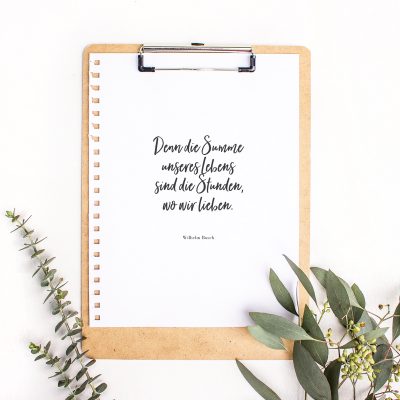 Denn die Summe
unseres Lebens
sind die Stunden,
wo wir lieben.
Wilhelm Busch